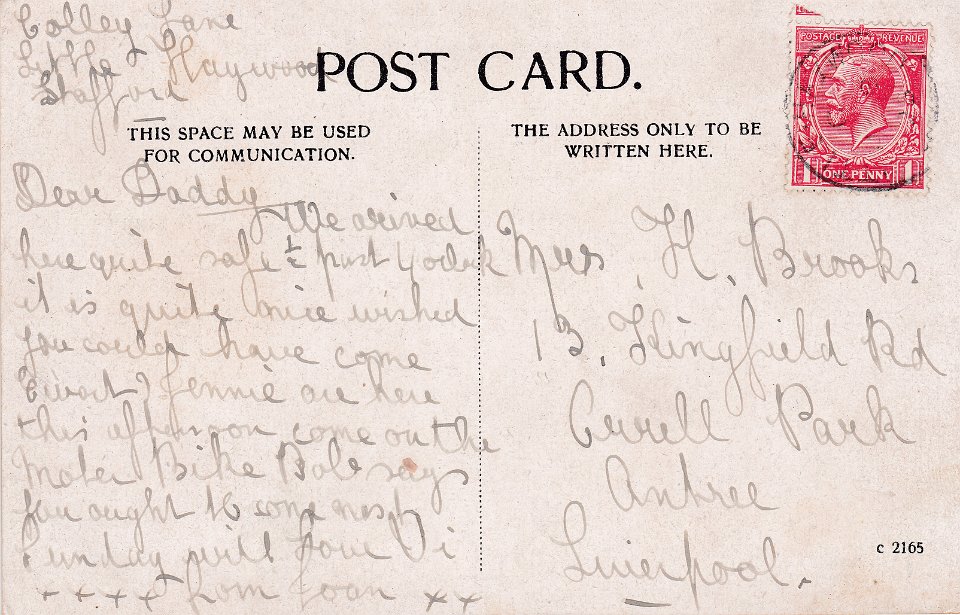 Colley Lane
Little Haywood
Stafford
POST CARD.
THIS SPACE MAY BE USED
FOR COMMUNICATION.
THE ADDRESS ONLY TO BE
WRITTEN HERE.
POSTAGE REVENUE
1 ONE PENNY 1
Dear Daddy
We arived
here quite safe ½ past 4 oclock
it is quite nice wished
you could have come
Ewart & Jennie are here
this afternoon come on the
Moter Bike Bob says
you ought to come next
Sunday will you Di
++++ from Joan ++
Mrs H. Brooks
13, Kingfield Rd
Orrell Park
Antree
Liverpool.
C 2165